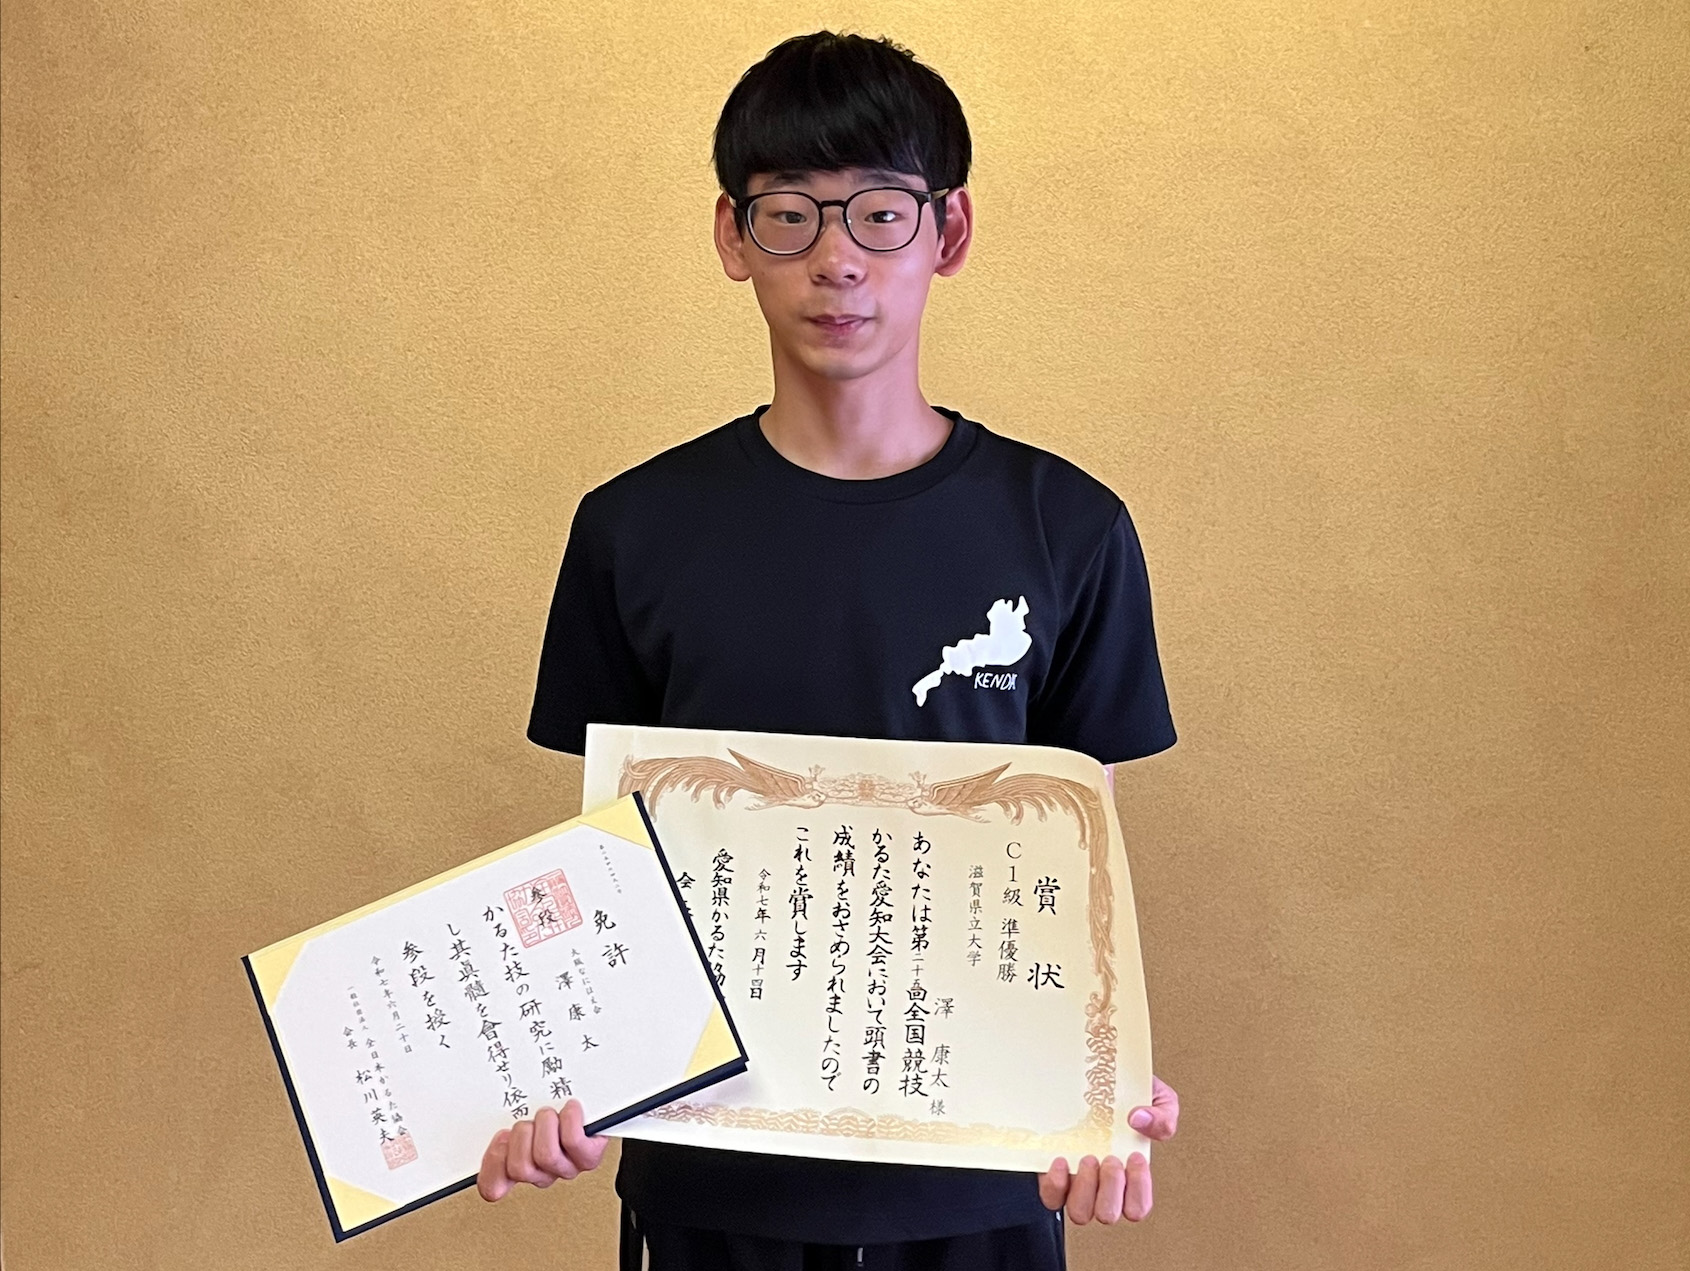 KENDA
賞状
C1級 準優勝
滋賀県立大学
澤 康太 様
あなたは第二十五回全国競技
かるた愛知大会において頭書の
成績をおさめられましたので
これを賞します
令和七年六月十四日
愛知県かるた協
会
免許
参段
大阪なにはえ会
澤 康太
かるた技の研究に励精
し其真髄を會得せり依而
参段を授く
令和七年六月二十日
一般社団法人 全日本かるた協会
会長 松川英夫